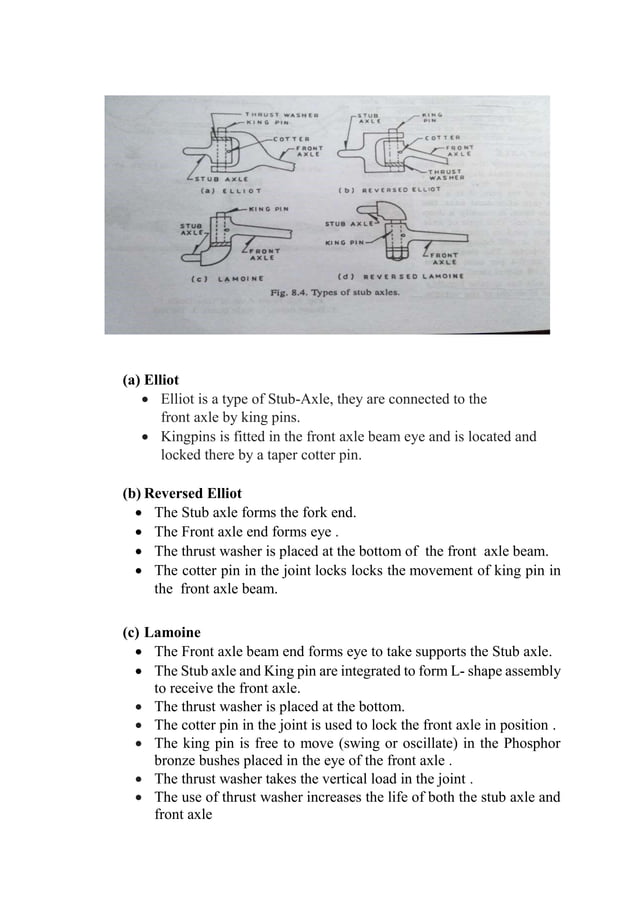 THRUST WASHER
KING PIN
COTTER
FRONT
AXLE
STUB AXLE
(a) ELLIOT
STUB
AXLE
KING
PIN
COTTER
FRONT
AXLE
THRUST
WASHER
(b) REVERSED ELLIOT
KING PIN
STUB
AXLE
FRONT
AXLE
(c) LAMOINE
STUB AXLE
KING PIN
FRONT
AXLE
(d) REVERSED LAMOINE
Fig. 8.4. Types of stub axles.
(a) Elliot
• Elliot is a type of Stub-Axle, they are connected to the
front axle by king pins.
• Kingpins is fitted in the front axle beam eye and is located and
locked there by a taper cotter pin.
(b) Reversed Elliot
• The Stub axle forms the fork end.
• The Front axle end forms eye .
• The thrust washer is placed at the bottom of the front axle beam.
• The cotter pin in the joint locks locks the movement of king pin in
the front axle beam.
(c) Lamoine
• The Front axle beam end forms eye to take supports the Stub axle.
• The Stub axle and King pin are integrated to form L- shape assembly
to receive the front axle.
• The thrust washer is placed at the bottom.
• The cotter pin in the joint is used to lock the front axle in position .
• The king pin is free to move (swing or oscillate) in the Phosphor
bronze bushes placed in the eye of the front axle .
• The thrust washer takes the vertical load in the joint .
• The use of thrust washer increases the life of both the stub axle and
front axle